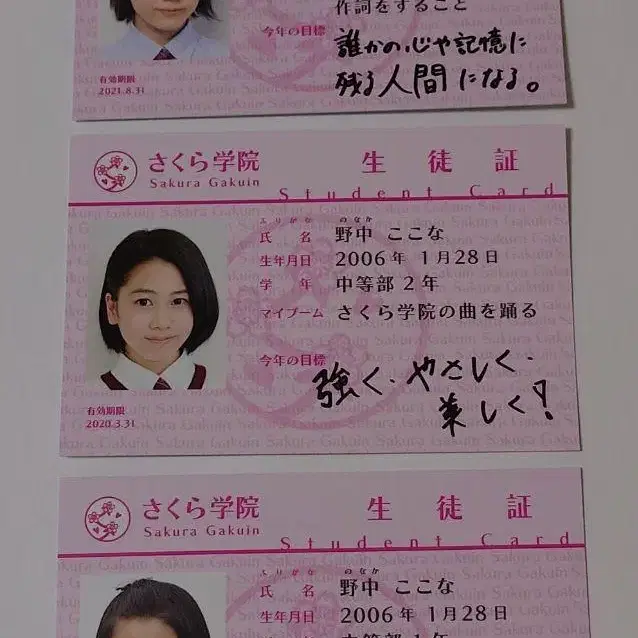 作詞をすること
今年の目標
誰かの心や記憶に
残る人間になる。
有効期限
2021.8.31
さくら学院
Sakura Gakuin
生徒証
Student Card
ふりがな のなか
氏名 野中 ここな
生年月日 2006年 1月28日
学年 中等部2年
マイブーム さくら学院の曲を踊る
今年の目標
強く、やさしく、
楽しく!
有効期限
2020.3.31
さくら学院
Sakura Gakuin
生徒証
Student Card
ふりがな のなか
氏名 野中 ここな
生年月日 2006年 1月28日
中等部1年